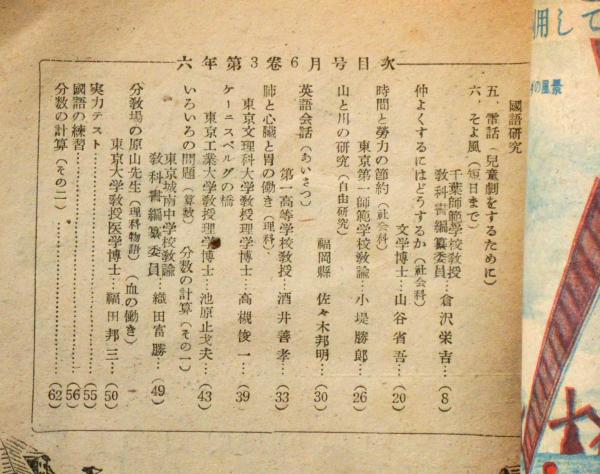 六年第3卷6月号目次
國語研究
五、電話(兒童劇をするために)
六、そよ風(短日まで)
千葉師範学校敎授
敎科書編纂委員…倉沢栄吉…(8)
仲よくするにはどうするか(社会科)
文学博士…山谷省吾…(20)
時間と勞力の節約(社会科)
東京第一師範学校敎諭…小堤勝郎…(26)
山と川の研究(自由研究)
福岡縣 佐々木邦明…(30)
英語会話(あいさつ)
第一高等学校敎授…酒井善孝…(33)
肺と心臓と胃の働き(理科)
東京文理科大学敎授理学博士…高槻俊一…(39)
ケーニスベルグの橋
東京工業大学敎授理学博士…池原止戈夫…(43)
いろいろの問題(算数) 分数の計算(その一)
東京城南中学校敎諭
敎科書編纂委員…織田富勝…(49)
分敎場の原山先生(理科物語)(血の働き)
東京大学敎授医学博士…福田邦三…(50)
実力テスト…(55)
國語の練習…(56)
分数の計算(その二)…(62)
用して
の風景